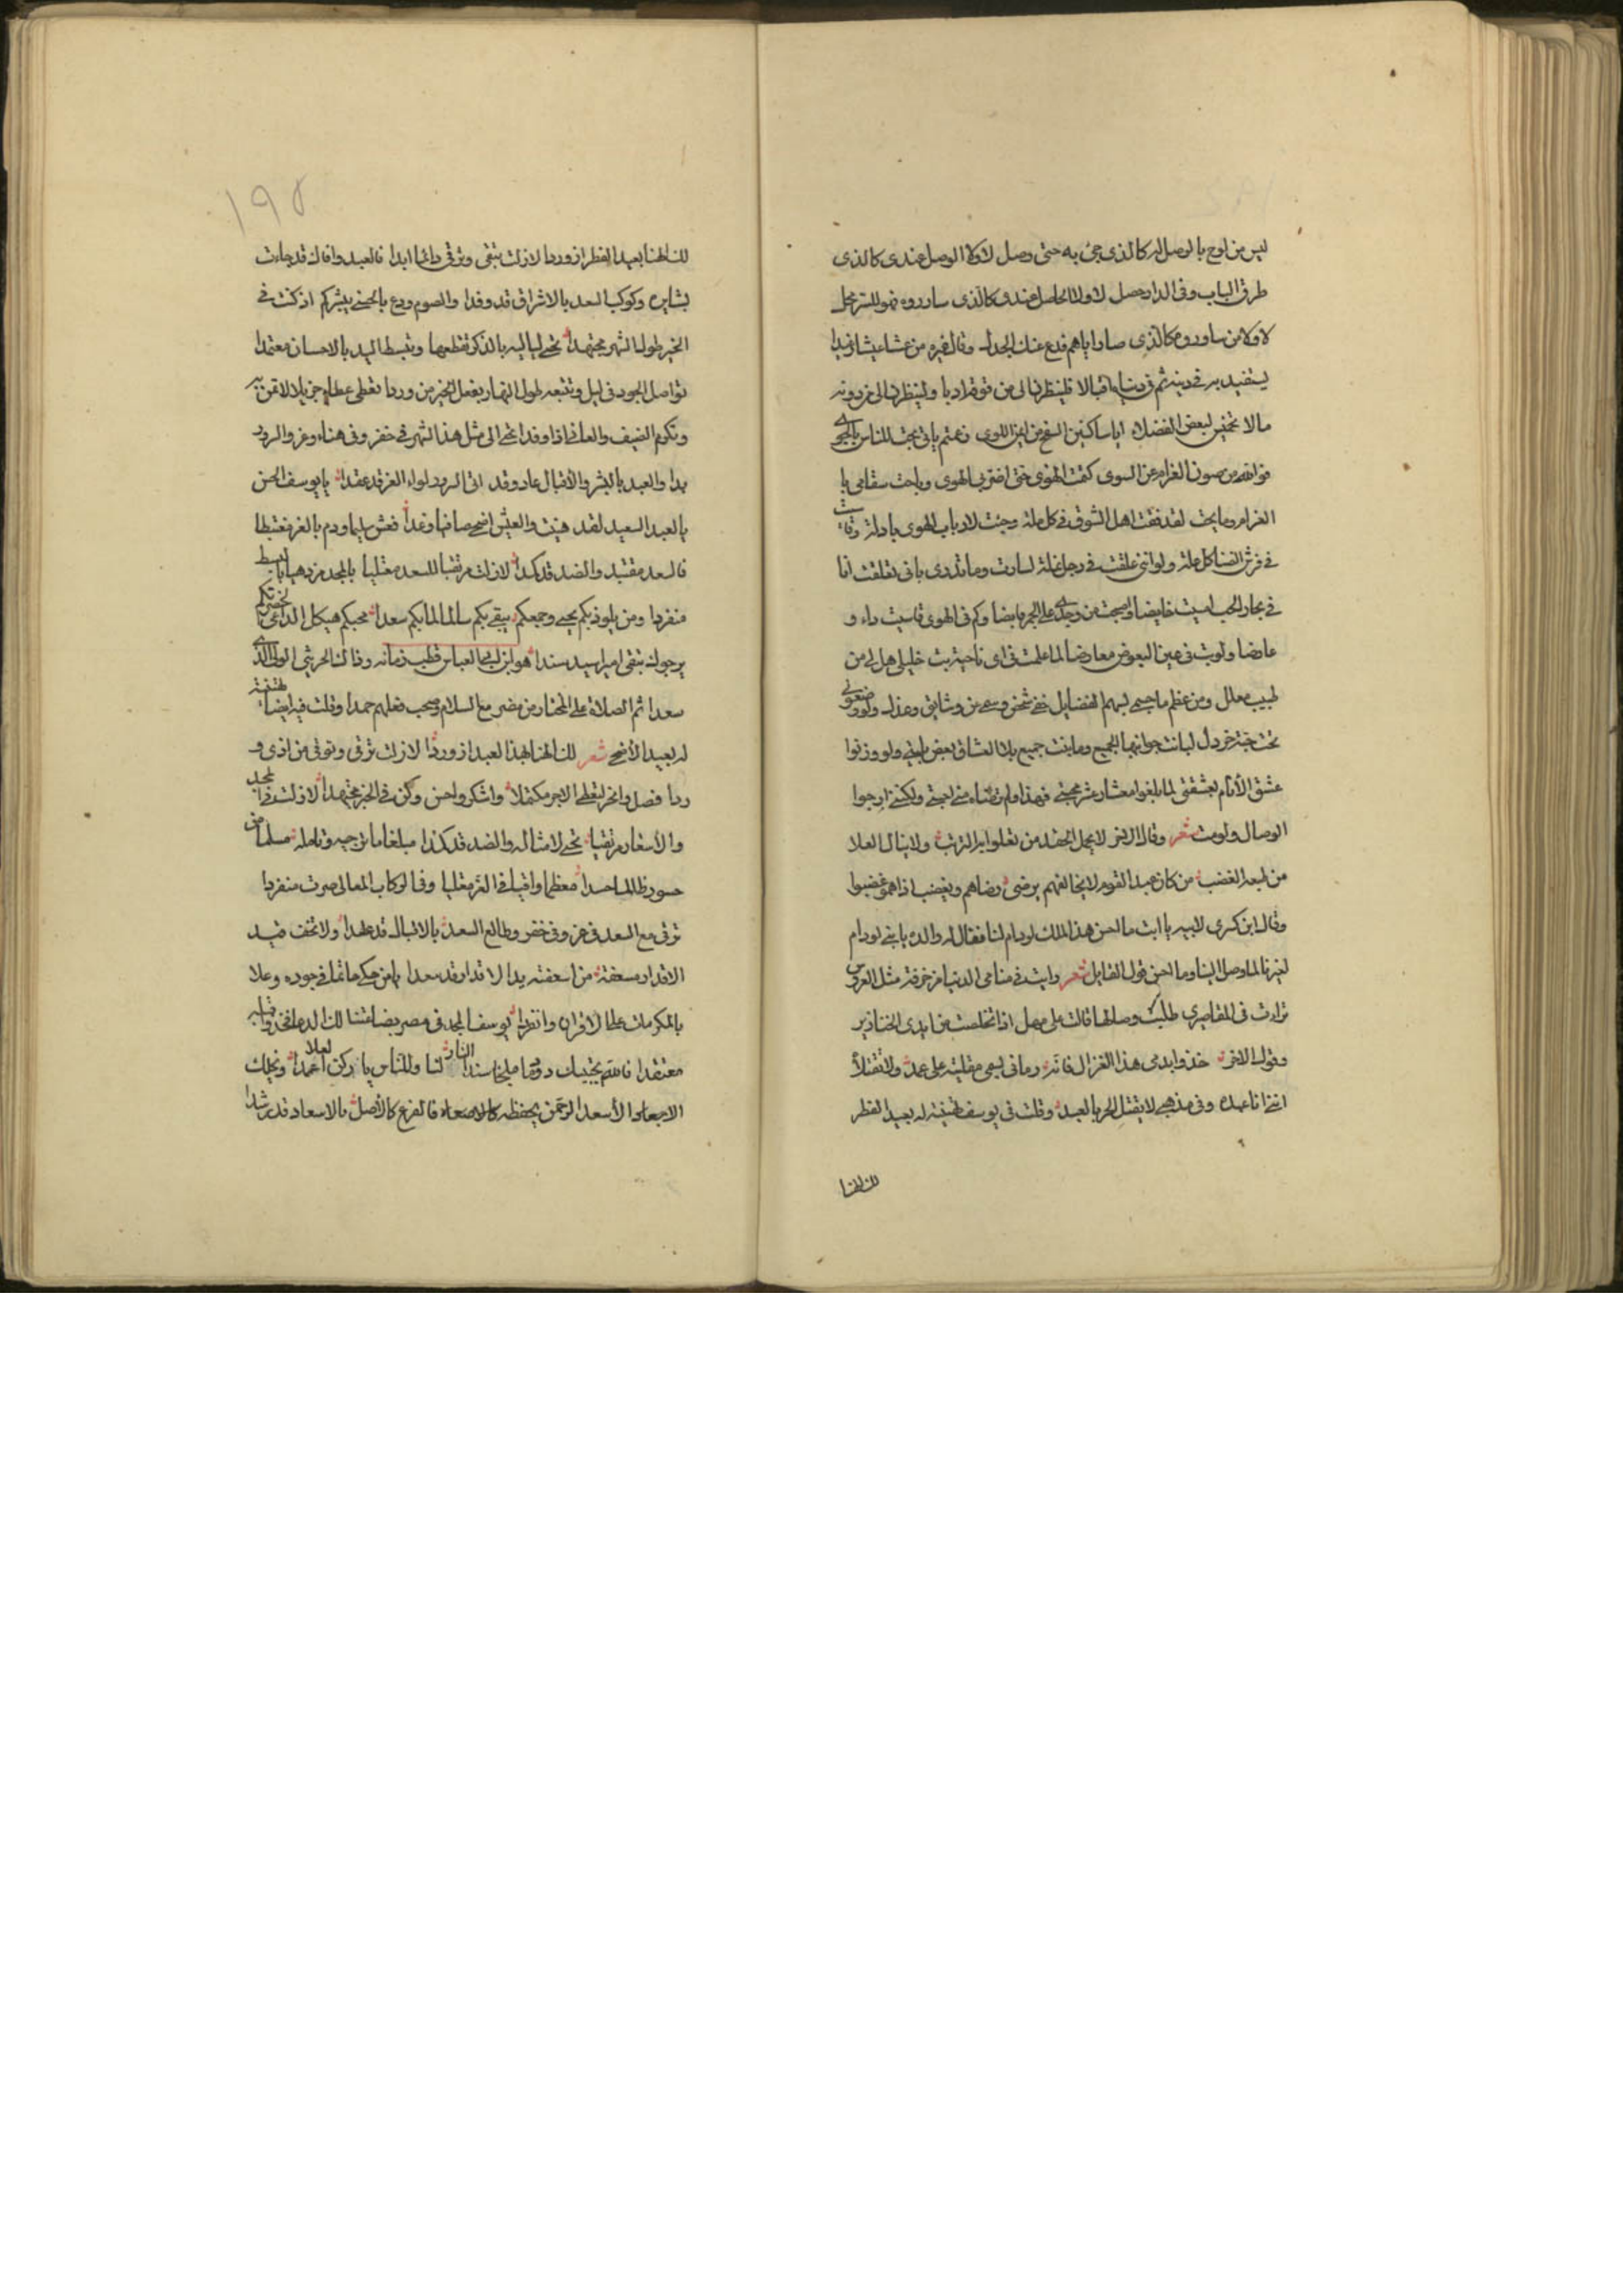 ليس من لوح بالوصل له كالذي جئ به حتى وصل لا ولا الوصل عندى كالذى
طرق الباب وفى الدار حصل لا ولا الحاصل عندى كالذى ساروره فهو للسر محل
لا ولا من ساوروه كالذى صار اياهم فدع عنك الجدل وقال غيره من عشا عيشا رغيدا
يستفيد به فى دينه ثم فى دنياه اقبالا فلينظرن الى من فوقه ادبا ولينظرن الى من دونه
مالا تخميس لبعض الفضلاء ايا ساكنين السفح من ايمن اللوى زعمتم بانى بحت للناس بالجوى
فوالله من صون الغرام عن السوى كتمت الهوى حتى اضر بى الهوى وباحت سقامى يا
الغرام وما بحت لقد فقت اهل الشوق فى كل ملة وجئت لارباب الهوى بادلة وقاسيت
فى فرش الضنا كل علة ولو اننى علقت فى رجل نملة لسارت وما تدرى بانى تعلقت انا
فى بحار الحب اميت خايضا واصبحت من وجدى على الجمر قابضا وكم فى الهوى قاسيت داء و
عارضا ولو بت فى عين البعوض معارضا لما علمت فى اى ناحية بت خليلى هل لى من
طبيب معلل ومن عظم ما جسمى لسهم الفضايل خفى شخص وسمى من وشايق وعذل ولو وضعونى
تحت حبة خردل لبانت جوانبها الجميع وما بنت جميع بلا العشاق بعض بليتى ولو وزنوا
عشق الانام بعشقتى لما بلغوا معشار عشر محبتى فهذا ولم تضاء منى لحيتى ولكننى ارجوا
الوصال ولو مت شعر وقال الاخر لا يحمل الحقد من تعلوا به الرتب ولا ينال العلا
من طبعه الغضب من كان عبد القوم لا يخالفهم يرضى رضاهم ويغضب اذا هموا غضبوا
وقال ابن كسرى لابيه يا ابت ما احسن هذا الملك لو دام لنا فقال له والده يا بنى لو دام
لغيرنا لما وصل الينا وما احسن قول القايل شعر رايت فى منامى الدنيا مزخرفة مثل العروس
تراءت فى المقاصير طلبت وصلها قالت على مهل اذا تخلصت من ايدى الخنازير
وقول الاخر خذوا بدمى هذا الغزال فانه رمانى بسهمى مقلتيه على عمد ولا تقتلا
اننى انا عبده وفى مذهبى لا يقتل الحر بالعبد وقلت فى يوسف تهنية له بعيد الفطر
لك الهنا
١٩٥
لك الهنا بعيد الفطر اذ وردا لازلت تبقى وترقى دائما ابدا فالعيد وافاك قد جاءت
بشايره وكوكب السعد بالاشراق قد وفدا والصوم ودع بالحسنى يبشركم اذ كنت فى
الخير طول الشهر مجتهدا تحى لياليه بالذكر تقطعها وتبسط اليد بالاحسان معتمدا
تواصل الجود فى ليل وتتبعه طول النهار بفعل الخير من وردا تعطى عطاء جزيلا لا تمن به
وتكرم الضيف والعافى اذا وفدا تحى الى مثل هذا الشهر فى خفر وفى هناء وعز والسرور
بدا والعيد بالبشر والاقبال عاد وقد اتى السرور لواء العز قد عقدا يا يوسف الحسن
بالعيد السعيد لقد هنيت والعيش اضحى صافيا رغدا فعش سليما ودم بالعز مغتبطا
فالسعد مقتبل والضد قد كمدا لازلت مرتقبا للسعد معتليا بالمجد مزدهيا بالبسط
منفردا ومن يلوذ بكم يحيى وجمعكم يبقى بكم سالما لما بكم سعدا محبكم هيكل الداعى لحضرتكم
يرجوك تبقى اميرا سيدا سندا هو ابن ابى العباس قطب زمانه وذاك الحريثى الولى الذى
سعدا ثم الصلاة على المختار من مضر مع السلام وصحب فعلهم حمدا وقلت فيه ايضا تهنية
له بعيد الاضحى شعر لك الهنا بهذا العيد اذ وردا لازلت ترقى وتوقى من اذى و
ردا فصل وانحر لتعطى الاجر مكتملا واشكر واحسن وكن فى الخير مجتهدا لازلت فى المجد
والاسعار مرتقيا تحى لامثاله والضد قد كمدا مبلغا ما ترجيه وتامله مسلما من
حسود ظالما حسدا معظما واقيا فى العز معتليا وفى اكوكاب المعالى صرت منفردا
ترقى مع السعد فى عز وفى خفر وطالع السعد بالاقبال قد عهدا ولا تخف ضيد
الاقدار مسعفة من اسعفته يد الاقدار قد سعدا يا من حكى حاتما فى جوده وعلا
بالمكرمات على الاقران وانفردا يوسف المجد فى مصر بضاعتنا لك الدعا فخذ وافيه
معتقدا فالله يحييك دوما ملجا سندا لنا وللناس يا ركن العلا عمدا ونجلك
الاسعد الرحمن يحفظه فالفرع كالاصل بالاسعاد قد رشدا